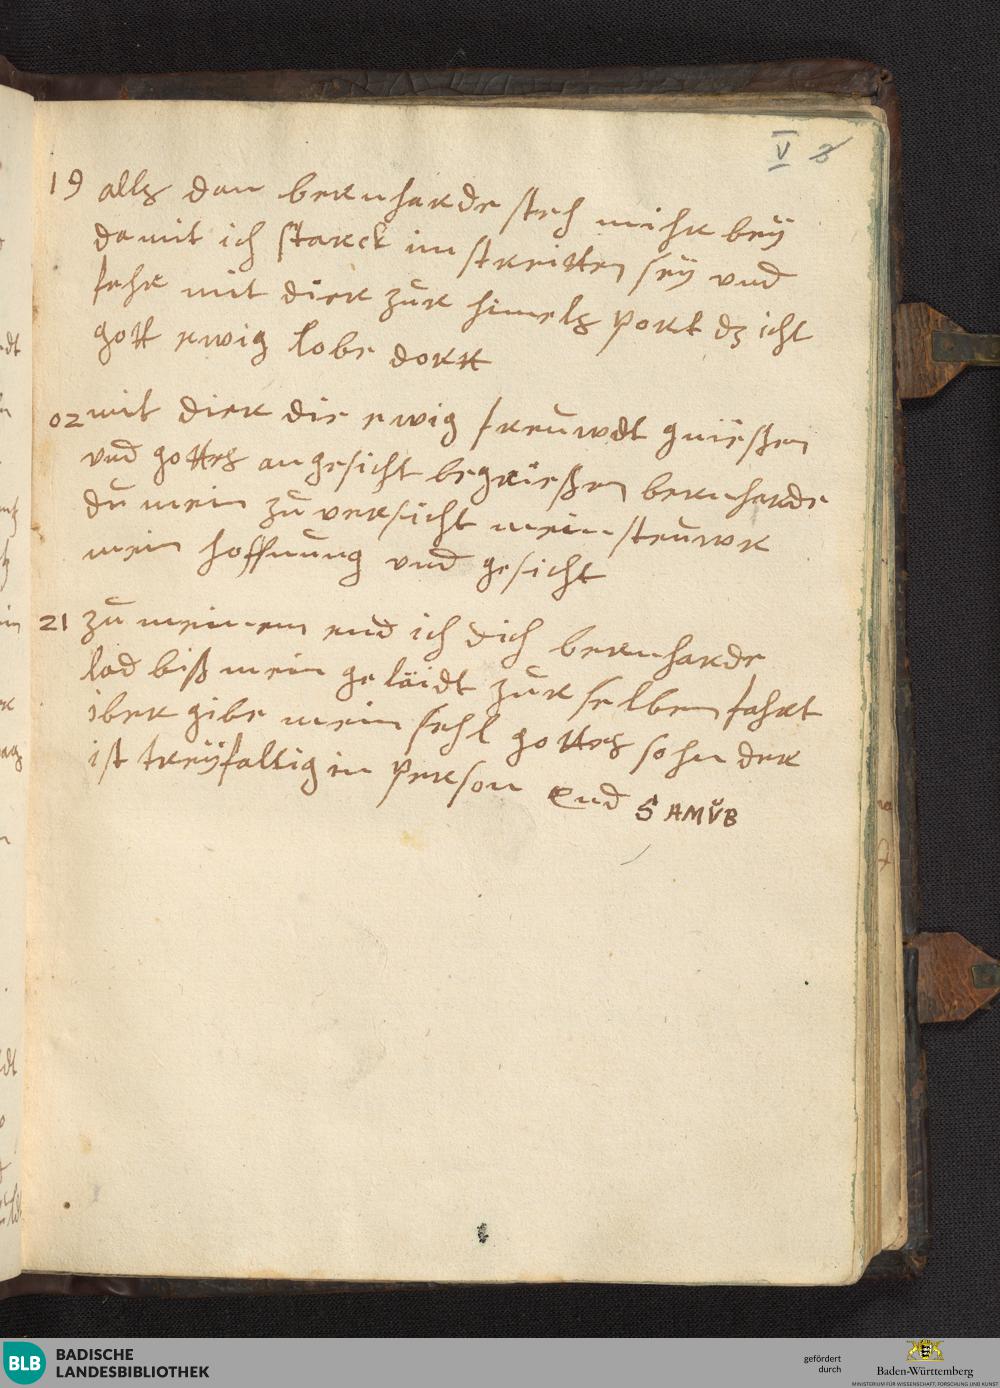 V 3
19 alls dan bernharde steh mihr beÿ
damit ich starck im streitten seÿ und
fehr mit dier zur himels port dz icht
gott ewig lobe dortt
02 mit dier die ewig freuwdt gnießen
und gottes angesicht begrießen bernharde
du mein zuversicht mein steuwr
mein hoffnung und gesicht
21 zu meinem end ich dich bernharde
lad biß mein geläidt zur selben fahrt
iber gibe mein sehl gottes sohn der
ist treÿfaltig in person end S AMVB
BLB BADISCHE
LANDESBIBLIOTHEK
gefördert
durch
Baden-Württemberg
MINISTERIUM FÜR WISSENSCHAFT, FORSCHUNG UND KUNST